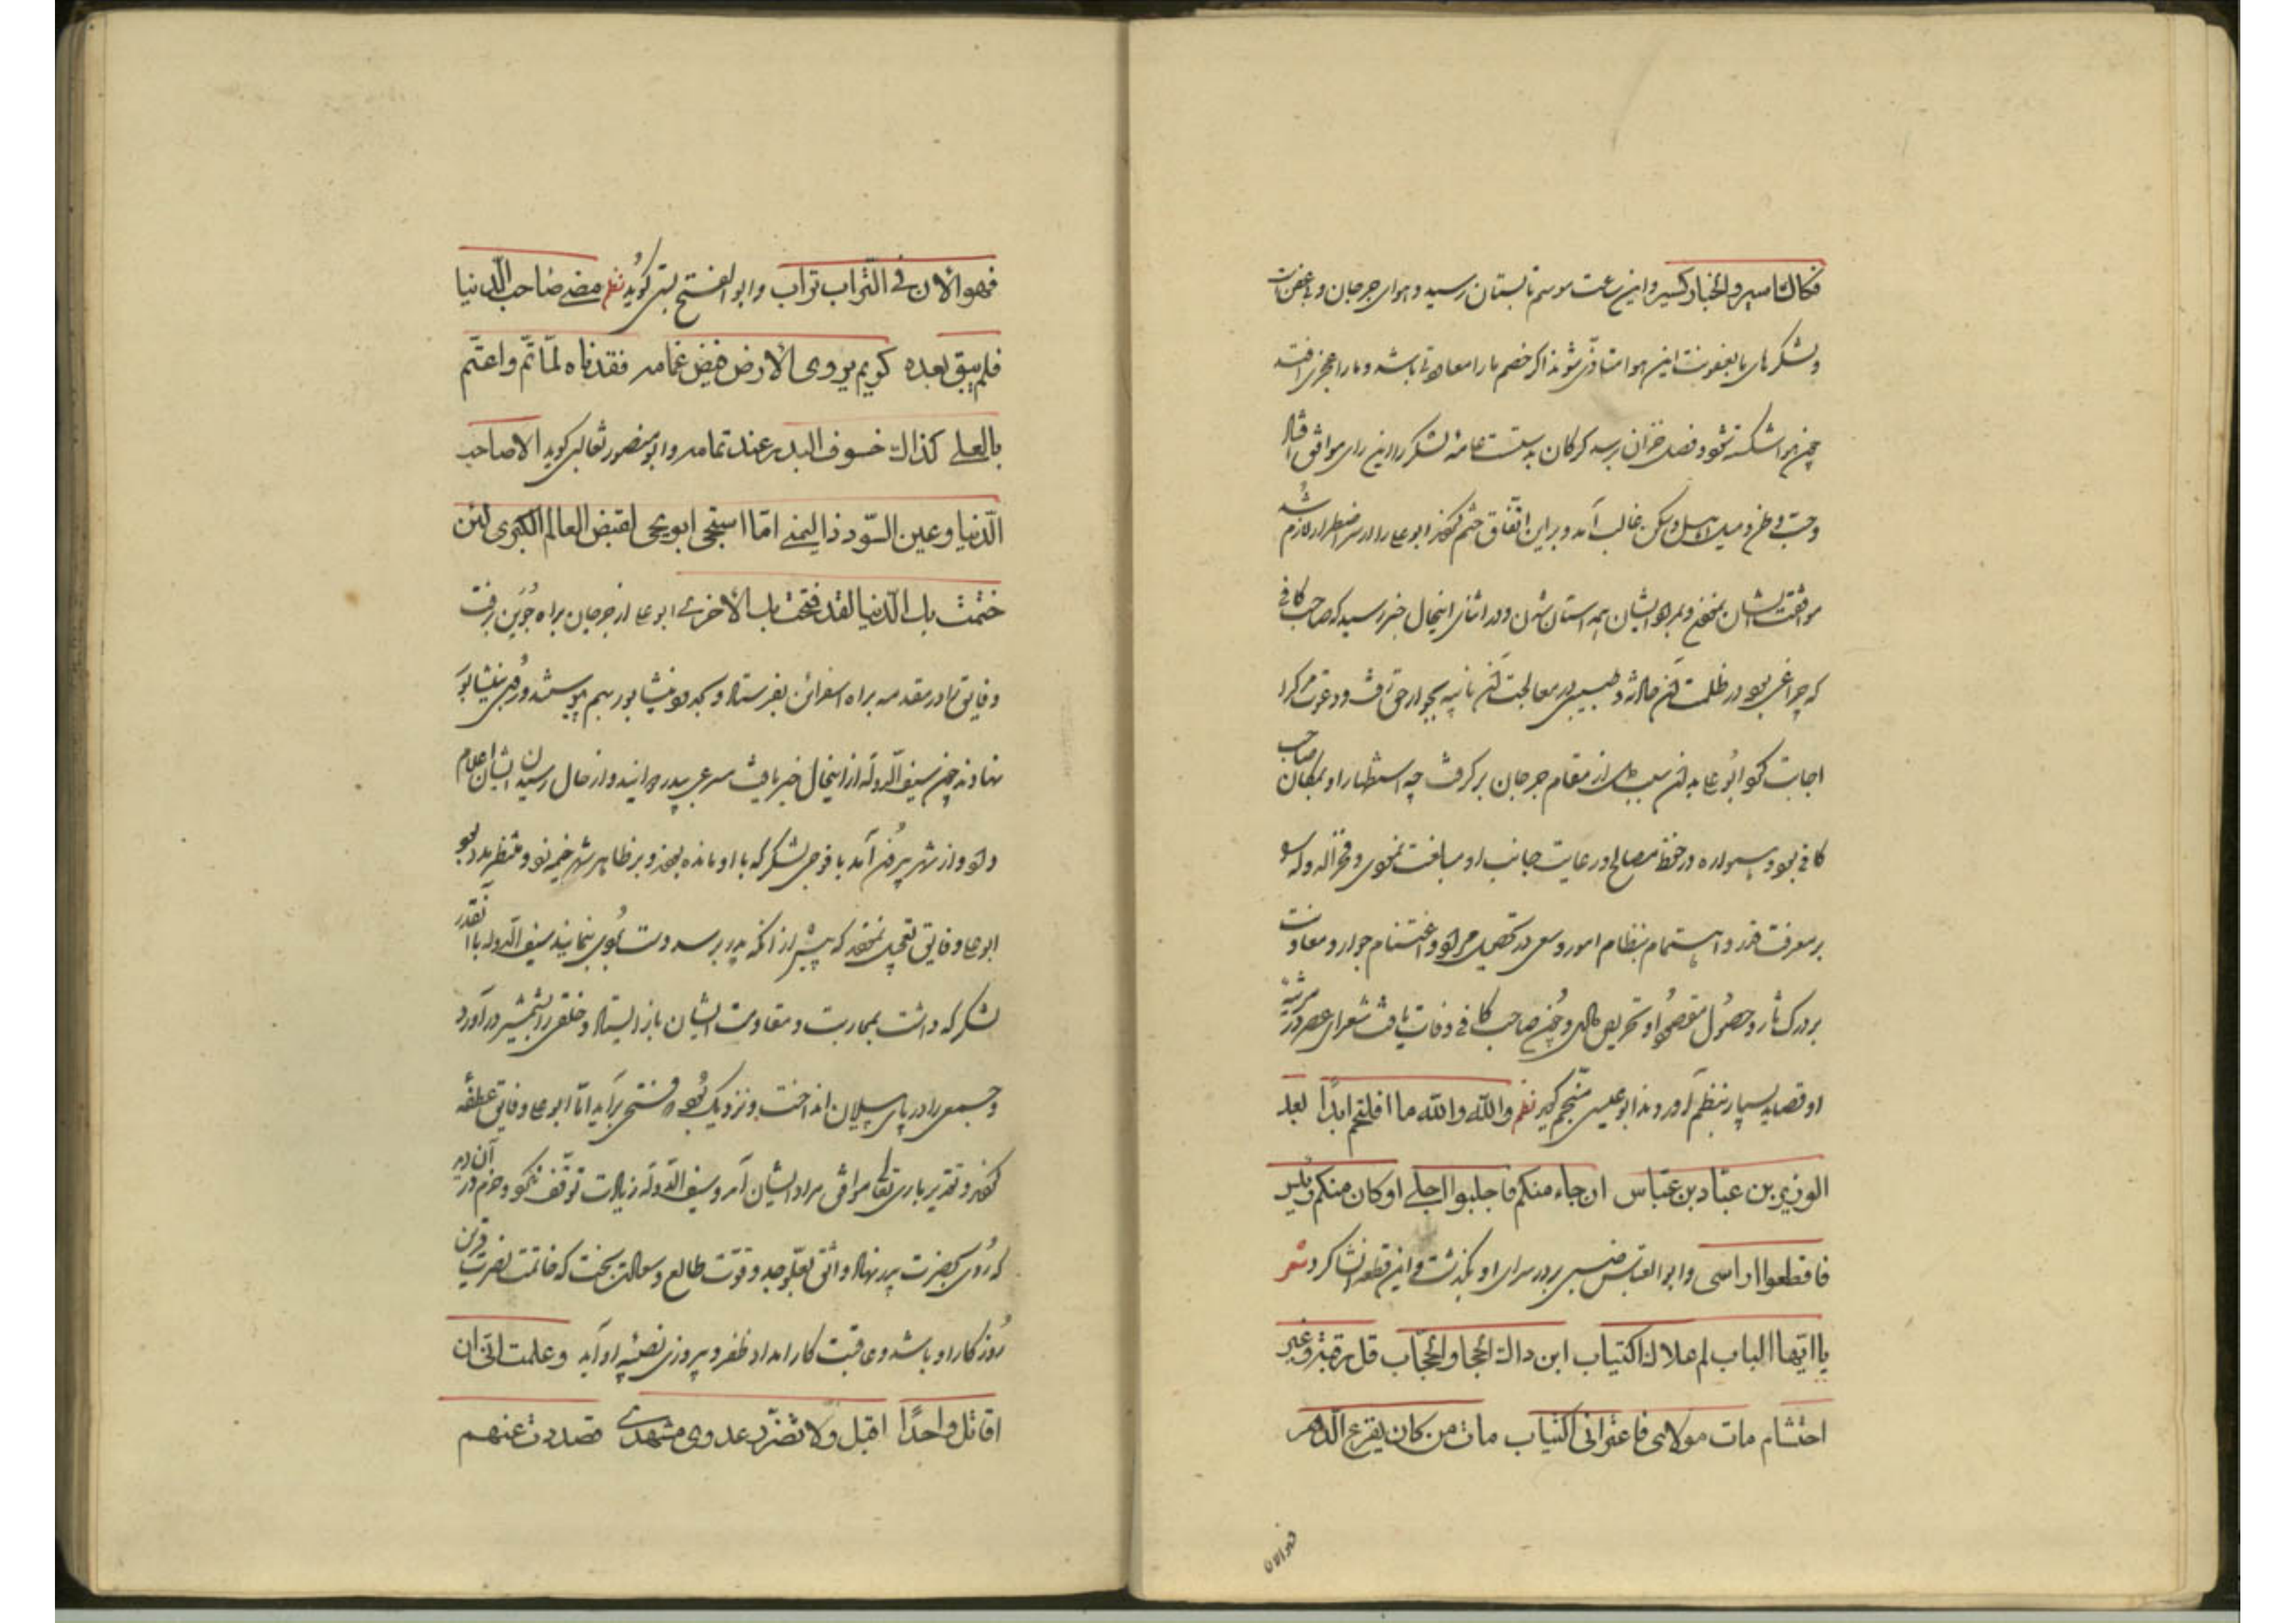 فکالکاسیر و الخبار کسیر و این ساعت موسم تابستان رسید و هوای جرجان وبا عفونت
و لشکر ما بعفونت این هوا متاذی شوند اگر خصم ما را معاودتی باشد و ما را عجزی افتد
چون هوا شکسته شود و فصل خزان برسد کرکان بدست عامه لشکر را این رای موافق افتاد
و حب وطن و میل اهل و سکن غالب آمد و براین اتفاق ختم کردند ابوعلی را از سر اضطرار لازم شد
موافقت ایشان نمودن و بمراد ایشان همداستان شدن و در اثنای اینحال خبر رسید که صاحب کافی
که چراغی بود در ظلمت آن حادثه و طبیبی در معالجت آن نائبه بجوار حق رفت و دعوت مرگ را
اجابت کرد ابوعلی بدین سبب دل از مقام جرجان برگرفت چه استظهار او بمکان صاحب
کافی بود و همواره در حفظ مصالح و رعایت جانب او مبالغت نمودی و فخرالدوله را
بر معرفت قدر و اهتمام بنظام امور و سعی در تحصیل مراد و اغتنام جوار و معاونت
بر درک ثار و حصول مقصود او تحریض دادی و چون صاحب کافی وفات یافت شعرای عصر در مرثیه
او قصاید بسیار بنظم آوردند ابوعیسی منجم گوید نظم والله والله ما افلحتم ابدًا بعد
الوزیر بن عباد بن عباس ان جاء منکم فاجلبوا اجلی او کان منکم وزیر
فاقطعوا راسی و ابوالعباس ضبی بر در سرای او بگذشت و این قطعه انشا کرد شعر
یا ایها الباب لم علاک اکتیاب این ذاک الحجاب و الحجاب قل بلا رقبة و غیر
احتشام مات مولای فاعترانی اکتیاب مات من کان یفزع الدهر
فهو الان
فهو الان فی التراب تراب و ابوالفتح بستی گوید نظم مضی صاحب الدنیا
فلم یبق بعده کریم یروی الارض فیض غمامه فقدناه لما تم و اعتم
بالعلی کذاک خسوف البدر عند تمامه و ابومنصور ثعالبی گوید الا صاحب
الدنیا و عین السودد ذا الیمنی اما استحی ابویحی لقبض العالم الکبری لئن
ختمت بک الدنیا لقد فتحت بک الاخری ابوعلی از جرجان براه جوین برفت
و فایق را در مقدمه براه اسفراین بفرستاد و بحدود نیشابور بهم پیوستند و روی بنیشابور
نهادند چون سیف الدوله از اینحال خبر یافت مسرعی بپدر دوانید و از حال رسیدن ایشان اعلام
داد و از شهر بیرون آمد با فوجی لشکر که با او مانده بودند و بر ظاهر شهر خیمه زد و منتظر مدد بود
ابوعلی و فایق تعجیل نمودند که پیش از آنکه پدر برسد دست بردی بنمایند سیف الدوله با آنقدر
لشکر که داشت بمحاربت و مقاومت ایشان باز ایستاد و خلقی را بشمشیر درآورد
و جمعی را در پای پیلان انداخت و نزدیک بود که فتحی برآید اما ابوعلی و فایق عطفه
کردند و تقدیر باری تعالی موافق مراد ایشان آمد و سیف الدوله زیادت توقف نکرد و حزم در آن دید
که روی بحضرت پدر نهاد واثق بعلو جد و قوت طالع و سعادت بخت که خاتمت نصرت قرین
روزگار او باشد و عاقبت کار امداد ظفر و پیروزی نصیبه او آید و علمت انی ان
اقاتل واحدًا اقتل ولا تضرر عدوی مشهدی فصددت عنهم